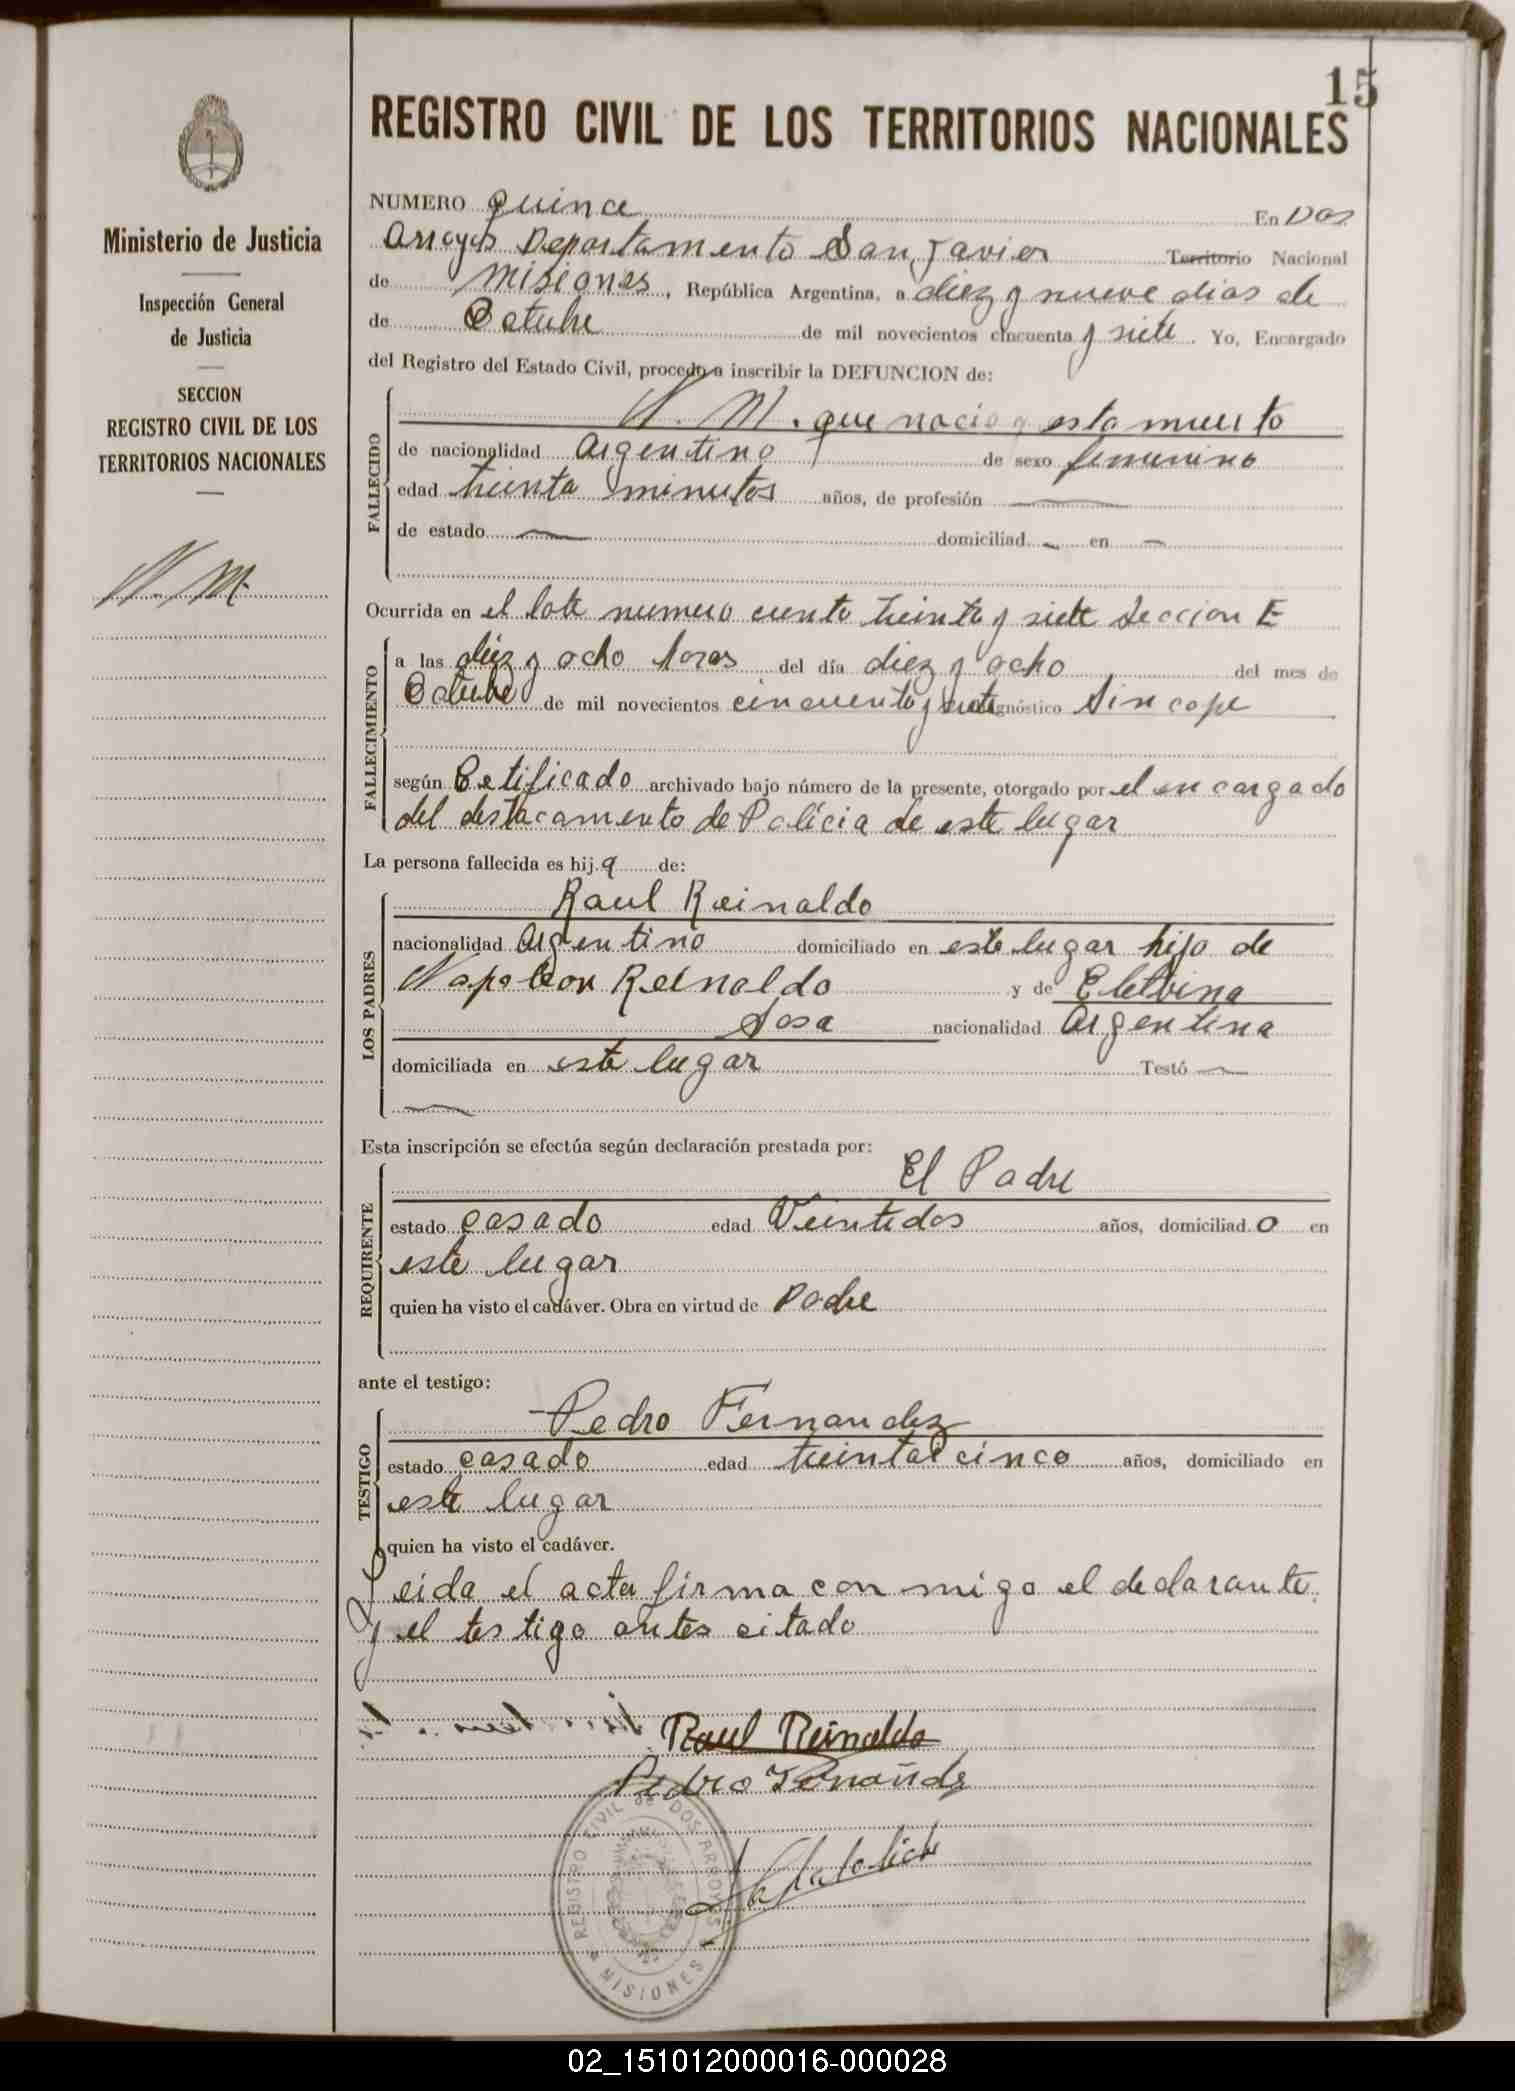 15
REGISTRO CIVIL DE LOS TERRITORIOS NACIONALES
Ministerio de Justicia
Inspección General
de Justicia
SECCION
REGISTRO CIVIL DE LOS
TERRITORIOS NACIONALES
N. M.
NUMERO quince En Dos
Arroyos Departamento San Javier Territorio Nacional
de misiones, República Argentina, a diez y nueve dias de
de Octubre de mil novecientos cincuenta y siete. Yo, Encargado
del Registro del Estado Civil, procedo a inscribir la DEFUNCION de:
FALLECIDO
N. M. que nacio y esta muerto
de nacionalidad Argentino de sexo femenino
edad treinta minutos años, de profesión
de estado domiciliad en
Ocurrida en el lote numero ciento treinta y siete Seccion E
FALLECIMIENTO
a las diez y ocho horas del día diez y ocho del mes de
Octubre de mil novecientos cincuenta y siete diagnóstico Sincope
según Cetificado archivado bajo número de la presente, otorgado por el encargado
del destacamento de Policia de este lugar
La persona fallecida es hij a de:
LOS PADRES
Raul Reinaldo
nacionalidad Argentino domiciliado en este lugar hijo de
Napoleon Reinaldo y de Eletvina
Sosa nacionalidad Argentina
domiciliada en este lugar Testó
Esta inscripción se efectúa según declaración prestada por:
REQUIRENTE
El Padre
estado casado edad Veintidos años, domiciliad o en
este lugar
quien ha visto el cadáver. Obra en virtud de Padre
ante el testigo:
TESTIGO
Pedro Fernandez
estado casado edad treinta cinco años, domiciliado en
este lugar
quien ha visto el cadáver.
Leida el acta firma con migo el declarante
y el testigo antes citado
Raul Reinaldo
Pedro Fernández
REGISTRO CIVIL de DOS ARROYOS
MISIONES
02_151012000016-000028